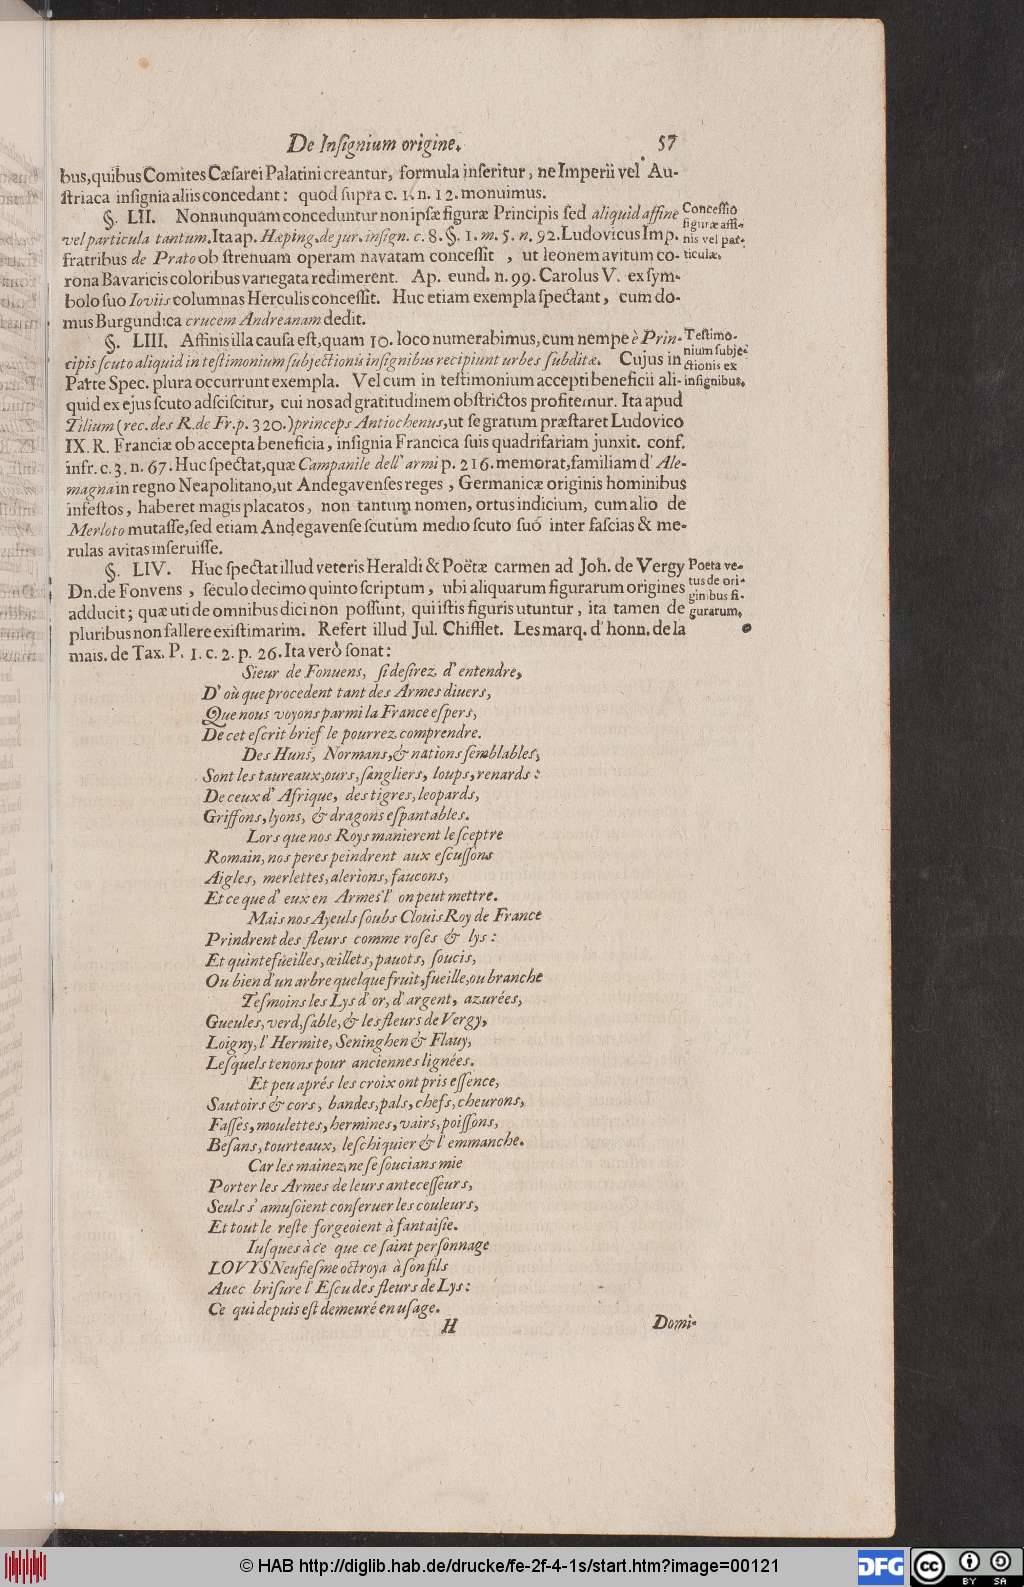 De Inſignium origine. 57
bus, quibus Comites Cæſarei Palatini creantur, formula inſeritur, ne Imperii vel Au-
ſtriaca inſignia aliis concedant: quod ſupra c. 1. n. 12. monuimus.
§. LII. Nonnunquam conceduntur non ipſæ figuræ Principis ſed aliquid affine
vel particula tantum. Ita ap. Hæping. de jur. inſign. c. 8. §. 1. m. 5. n. 92. Ludovicus Imp.
fratribus de Prato ob ſtrenuam operam navatam conceſſit, ut leonem avitum co-
rona Bavaricis coloribus variegata redimerent. Ap. eund. n. 99. Carolus V. ex ſym-
bolo ſuo Ioviis columnas Herculis conceſſit. Huc etiam exempla ſpectant, cum do-
mus Burgundica crucem Andreanam dedit.
Conceſſio
figuræ affi-
nis vel par-
ticulæ.
§. LIII. Affinis illa cauſa eſt, quam 10. loco numerabimus, cum nempe è Prin-
cipis ſcuto aliquid in teſtimonium ſubjectionis inſignibus recipiunt urbes ſubditæ. Cujus in
Parte Spec. plura occurrunt exempla. Vel cum in teſtimonium accepti beneficii ali-
quid ex ejus ſcuto adſciſcitur, cui nos ad gratitudinem obſtrictos profitemur. Ita apud
Tilium (rec. des R. de Fr. p. 320.) princeps Antiochenus, ut ſe gratum præſtaret Ludovico
IX. R. Franciæ ob accepta beneficia, inſignia Francica ſuis quadrifariam junxit. conf.
infr. c. 3. n. 67. Huc ſpectat, quæ Campanile dell' armi p. 216. memorat, familiam d' Ale-
magna in regno Neapolitano, ut Andegavenſes reges, Germanicæ originis hominibus
infeſtos, haberet magis placatos, non tantum nomen, ortus indicium, cum alio de
Merloto mutaſſe, ſed etiam Andegavenſe ſcutum medio ſcuto ſuo inter faſcias & me-
rulas avitas inſeruiſſe.
Teſtimo-
nium ſubje-
ctionis ex
inſignibus.
§. LIV. Huc ſpectat illud veteris Heraldi & Poëtæ carmen ad Joh. de Vergy
Dn. de Fonvens, ſeculo decimo quinto ſcriptum, ubi aliquarum figurarum origines
adducit; quæ uti de omnibus dici non poſſunt, qui iſtis figuris utuntur, ita tamen de
pluribus non fallere exiſtimarim. Refert illud Jul. Chifflet. Les marq. d' honn. de la
mais. de Tax. P. 1. c. 2. p. 26. Ita verò ſonat:
Poeta ve-
tus de ori-
ginibus fi-
gurarum.
Sieur de Fonuens, ſi deſirez d' entendre,
D' où que procedent tant des Armes diuers,
Que nous voyons parmi la France eſpers,
De cet eſcrit brief le pourrez comprendre.
Des Huns, Normans, & nations ſemblables,
Sont les taureaux, ours, ſangliers, loups, renards:
De ceux d' Afrique, des tigres, leopards,
Griffons, lyons, & dragons eſpantables.
Lors que nos Roys manierent le ſceptre
Romain, nos peres peindrent aux eſcuſſons
Aigles, merlettes, alerions, faucons,
Et ce que d' eux en Armes l' on peut mettre.
Mais nos Ayeuls ſoubs Clouis Roy de France
Prindrent des fleurs comme roſes & lys:
Et quintefueilles, œillets, pauots, ſoucis,
Ou bien d' un arbre quelque fruit, fueille, ou branche
Teſmoins les Lys d' or, d' argent, azurées,
Gueules, verd, ſable, & les fleurs de Vergy,
Loigny, l' Hermite, Seninghen & Flauy,
Leſquels tenons pour anciennes lignées.
Et peu aprés les croix ont pris eſſence,
Sautoirs & cors, bandes, pals, chefs, cheurons,
Faſſes, moulettes, hermines, vairs, poiſſons,
Beſans, tourteaux, leſchiquier & l' emmanche.
Car les mainez ne ſe ſoucians mie
Porter les Armes de leurs anteceſſeurs,
Seuls s' amuſoient conſeruer les couleurs,
Et tout le reſte forgeoient à fantaiſie.
Iuſques à ce que ce ſaint perſonnage
LOVYS Neufieſme octroya à ſon fils
Auec briſure l' Eſcu des fleurs de Lys:
Ce qui depuis eſt demeuré en uſage.
H Domi-
© HAB http://diglib.hab.de/drucke/fe-2f-4-1s/start.htm?image=00121
DFG
cc BY SA